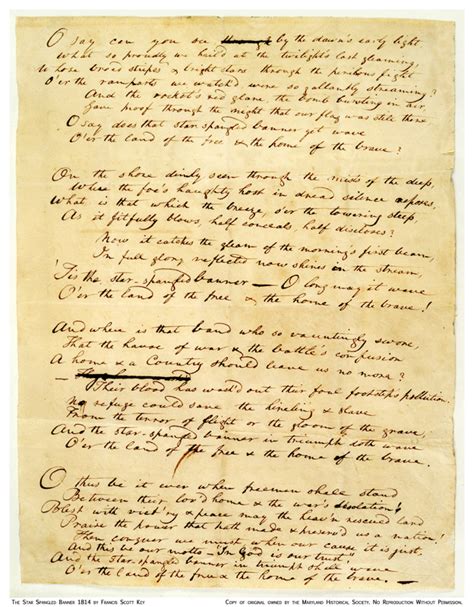 O say can you see ~~through~~ by the dawn's early light
What so proudly we hail'd at the twilight's last gleaming,
Whose broad stripes & bright stars through the perilous fight
O'er the ramparts we watch'd were so gallantly streaming?
And the rocket's red glare, the bomb bursting in air,
Gave proof through the night that our flag was still there
O say does that star-spangled banner yet wave
O'er the land of the free & the home of the brave?
On the shore dimly seen through the mists of the deep,
Where the foe's haughty host in dread silence reposes,
What is that which the breeze, o'er the towering steep,
As it fitfully blows, half conceals, half discloses?
Now it catches the gleam of the morning's first beam,
In full glory reflected now shines in the stream,
'Tis the star-spangled banner — O long may it wave
O'er the land of the free & the home of the brave!
And where is that band who so vauntingly swore,
That the havoc of war & the battle's confusion
A home & a Country should leave us no more?
Their blood has wash'd out their foul footstep's pollution.
No refuge could save the hireling & slave
From the terror of flight or the gloom of the grave,
And the star-spangled banner in triumph doth wave
O'er the land of the free & the home of the brave.
O thus be it ever when freemen shall stand
Between their lov'd home & the war's desolation!
Blest with vict'ry & peace may the heav'n rescued land
Praise the power that hath made & preserv'd us a nation!
Then conquer we must, when our cause it is just,
And this be our motto — "In God is our trust,"
And the star-spangled banner in triumph shall wave
O'er the land of the free & the home of the brave. —
The Star Spangled Banner 1814 by Francis Scott Key
Copy of original owned by the Maryland Historical Society. No Reproduction Without Permission.